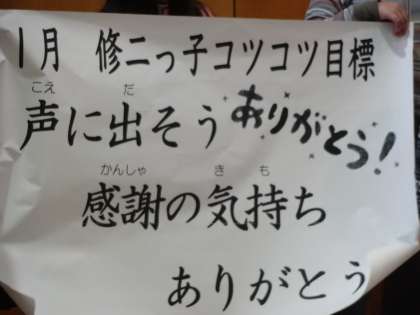 1月 修二っ子コツコツ目標
こえ だ
声に出そうありがとう!
かんしゃ き も
感謝の気持ち
ありがとう